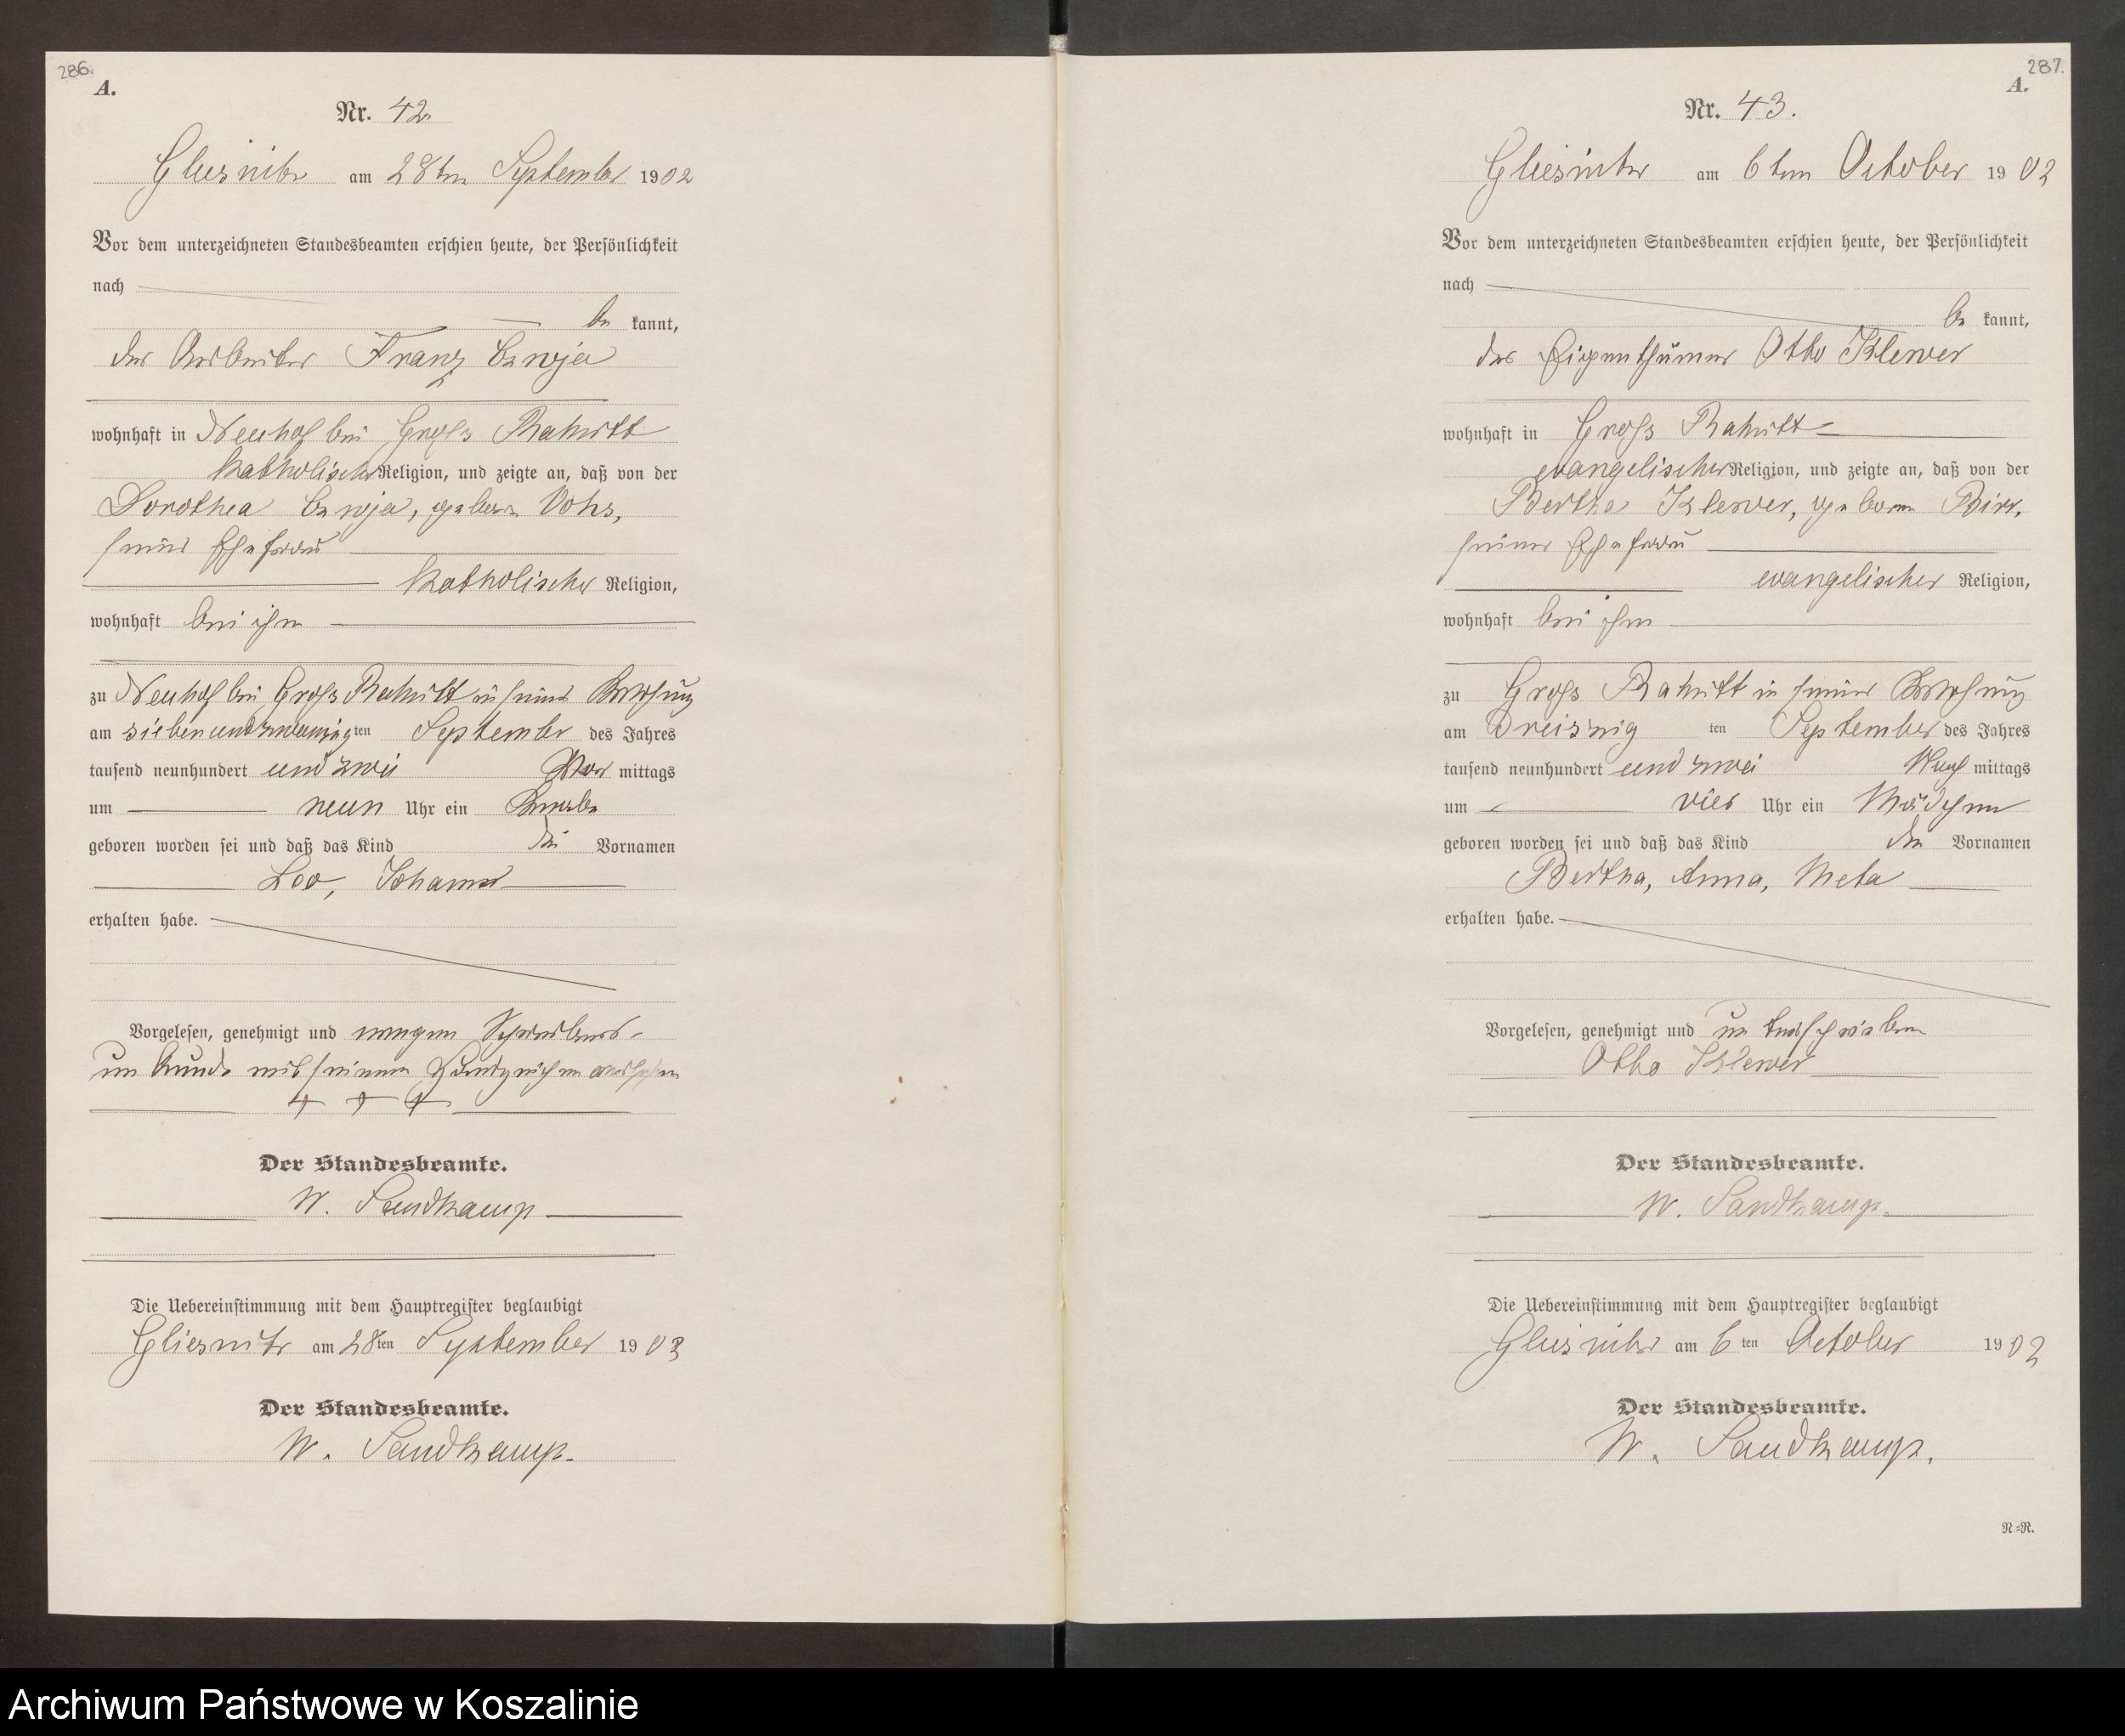 286.
A.
Nr. 42.
Gliesnitz am 28ten September 1902
Vor dem unterzeichneten Standesbeamten erschien heute, der Persönlichkeit
nach
be kannt,
der Arbeiter Franz
wohnhaft in Neuhof bei Groß Rakitt
katholischer Religion, und zeigte an, daß von der
Dorothea geborn Vohs,
seiner Ehefrau
katholischer Religion,
wohnhaft bei ihm
zu Neuhof bei Groß Rakitt in seiner Wohnung
am siebenundzwanzigten September des Jahres
tausend neunhundert und zwei Vor mittags
um neun Uhr ein Knabe
geboren worden sei und daß das Kind die Vornamen
Leo, Johann
erhalten habe.
Vorgelesen, genehmigt und wegen Schreibens-
unkunde mit seinem Handzeichen versehen
+ + +
Der Standesbeamte.
W. Sandkamp
Die Uebereinstimmung mit dem Hauptregister beglaubigt
Gliesnitz am 28ten September 1902
Der Standesbeamte.
W. Sandkamp.
287.
A.
Nr. 43.
Gliesnitz am 6ten October 1902
Vor dem unterzeichneten Standesbeamten erschien heute, der Persönlichkeit
nach
be kannt,
der Eigenthümer Otto Klewer
wohnhaft in Groß Rakitt
evangelischer Religion, und zeigte an, daß von der
Bertha Klewer, geboren Birr,
seiner Ehefrau
evangelischer Religion,
wohnhaft bei ihm
zu Groß Rakitt in seiner Wohnung
am Dreiszig ten September des Jahres
tausend neunhundert und zwei Nach mittags
um vier Uhr ein Mädchen
geboren worden sei und daß das Kind die Vornamen
Bertha, Anna, Meta
erhalten habe.
Vorgelesen, genehmigt und unterschrieben
Otto Klewer
Der Standesbeamte.
W. Sandkamp.
Die Uebereinstimmung mit dem Hauptregister beglaubigt
Gliesnitz am 6ten October 1902
Der Standesbeamte.
W. Sandkamp.
N.=R.
Archiwum Państwowe w Koszalinie